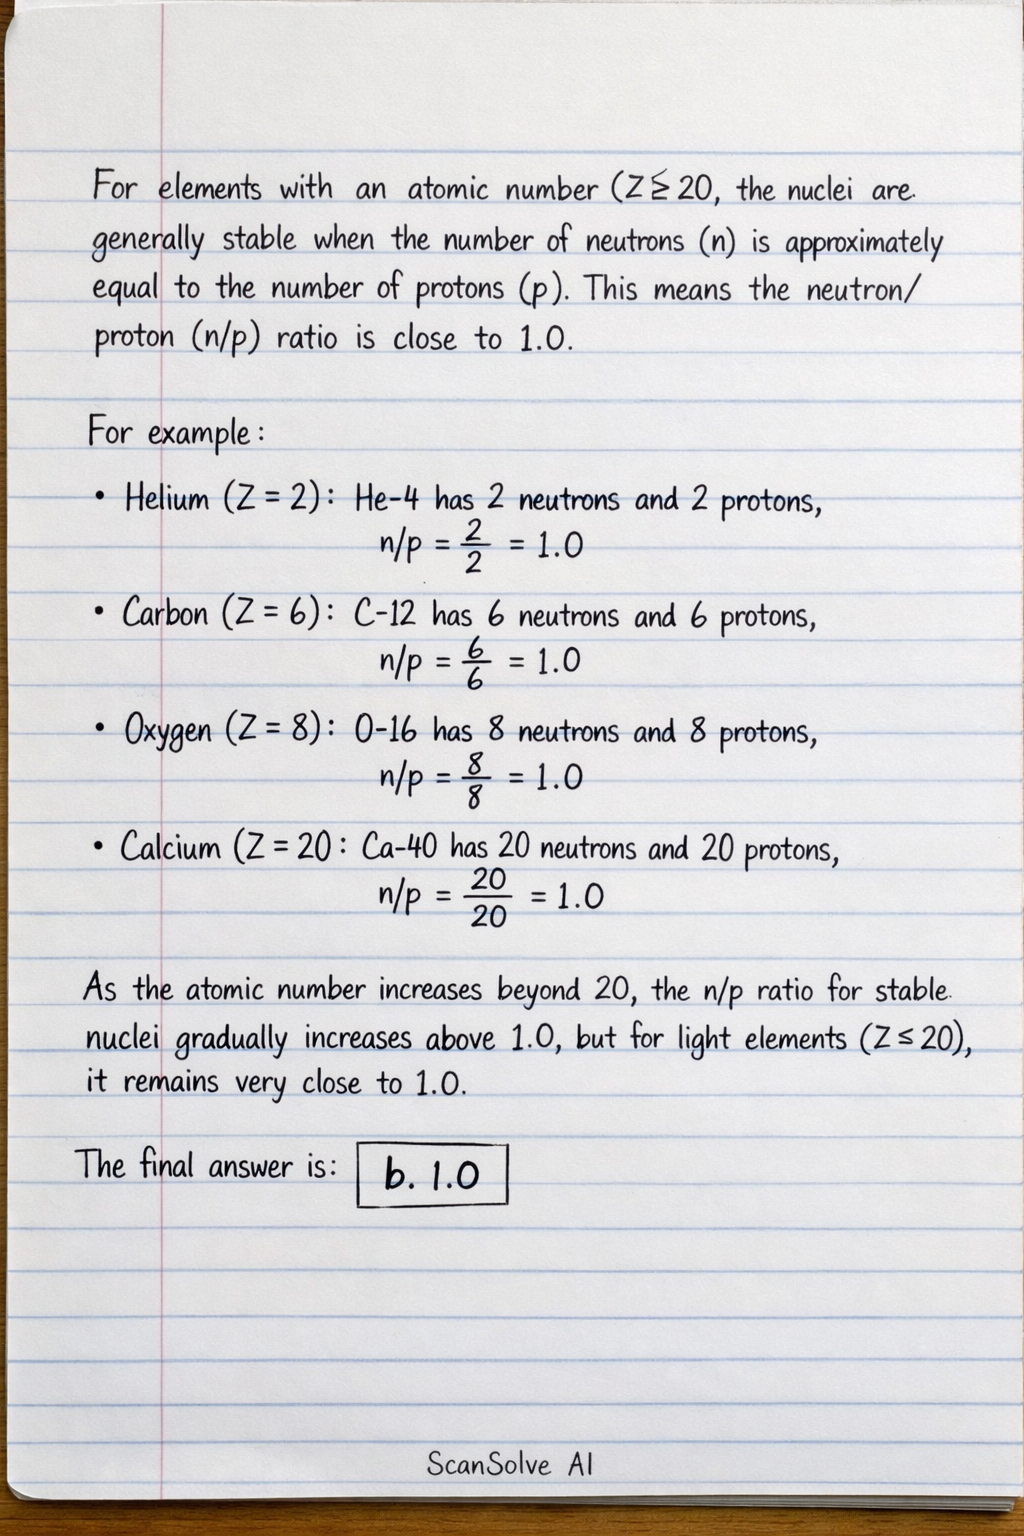 For elements with an atomic number (Z ≧ 20, the nuclei are
generally stable when the number of neutrons (n) is approximately
equal to the number of protons (p). This means the neutron/
proton (n/p) ratio is close to 1.0.
For example:
• Helium (Z = 2): He-4 has 2 neutrons and 2 protons,
n/p = 2/2 = 1.0
• Carbon (Z = 6): C-12 has 6 neutrons and 6 protons,
n/p = 6/6 = 1.0
• Oxygen (Z = 8): O-16 has 8 neutrons and 8 protons,
n/p = 8/8 = 1.0
• Calcium (Z = 20: Ca-40 has 20 neutrons and 20 protons,
n/p = 20/20 = 1.0
As the atomic number increases beyond 20, the n/p ratio for stable
nuclei gradually increases above 1.0, but for light elements (Z ≤ 20),
it remains very close to 1.0.
The final answer is: b. 1.0
ScanSolve AI